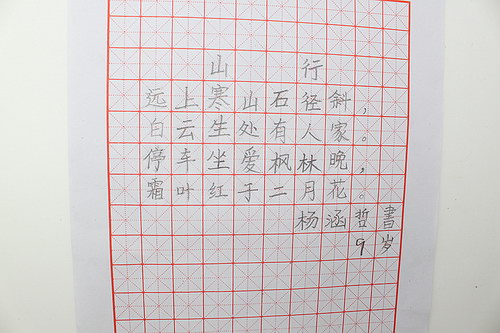 山行
远上寒山石径斜，
白云生处有人家。
停车坐爱枫林晚，
霜叶红于二月花。
杨涵哲書
9岁